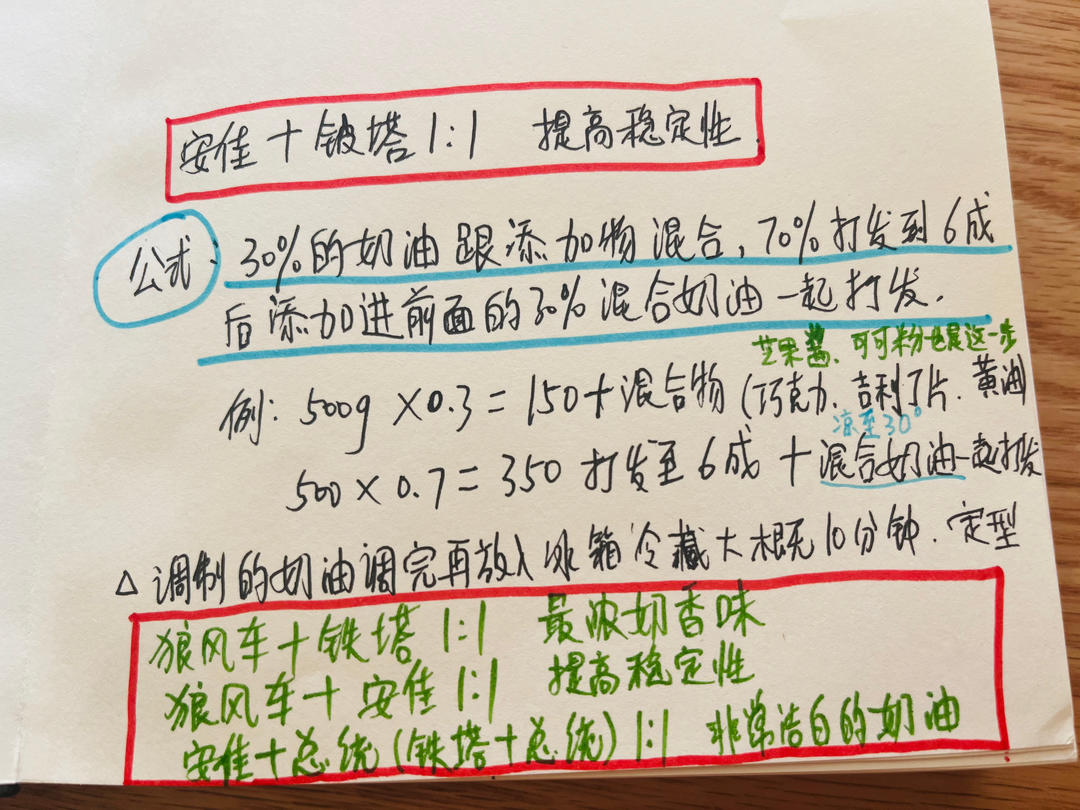 安佳+铍塔1:1 提高稳定性.
公式: 30%的奶油跟添加物混合,70%打发到6成
后添加进前面的30%混合奶油一起打发.
芒果酱、可可粉也是这一步
例: 500g×0.3=150+混合物(巧克力、吉利丁片、黄油)
凉至30°
500×0.7=350 打发至6成+混合奶油一起打发
△调制的奶油调完再放入冰箱冷藏大概10分钟.定型
狼风车+铁塔1:1 最浓奶香味
狼风车+安佳1:1 提高稳定性
安佳+总统(铁塔+总统)1:1 非常洁白的奶油